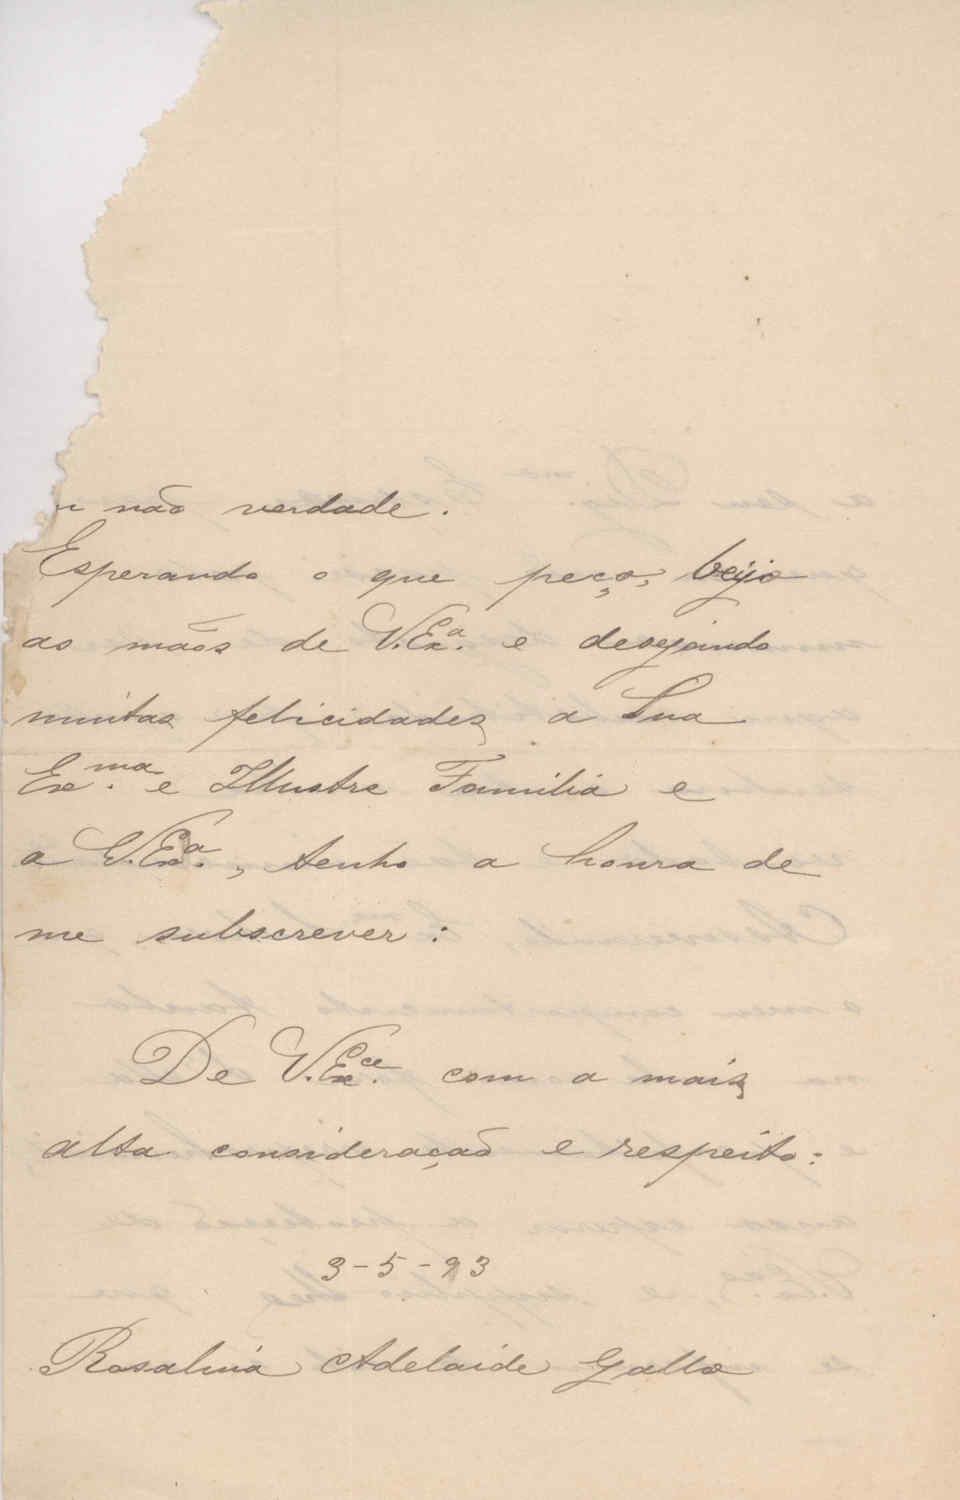 não verdade.
Esperando o que peço, beijo
as mãos de V. Ex.ª e desejando
muitas felicidades a Sua
Ex.ma e Illustre Familia e
a V. Ex.ª, tenho a honra de
me subscrever:
De V. Ex.ce com a mais
alta consideração e respeito:
3-5-93
Rosalina Adelaide Gallo